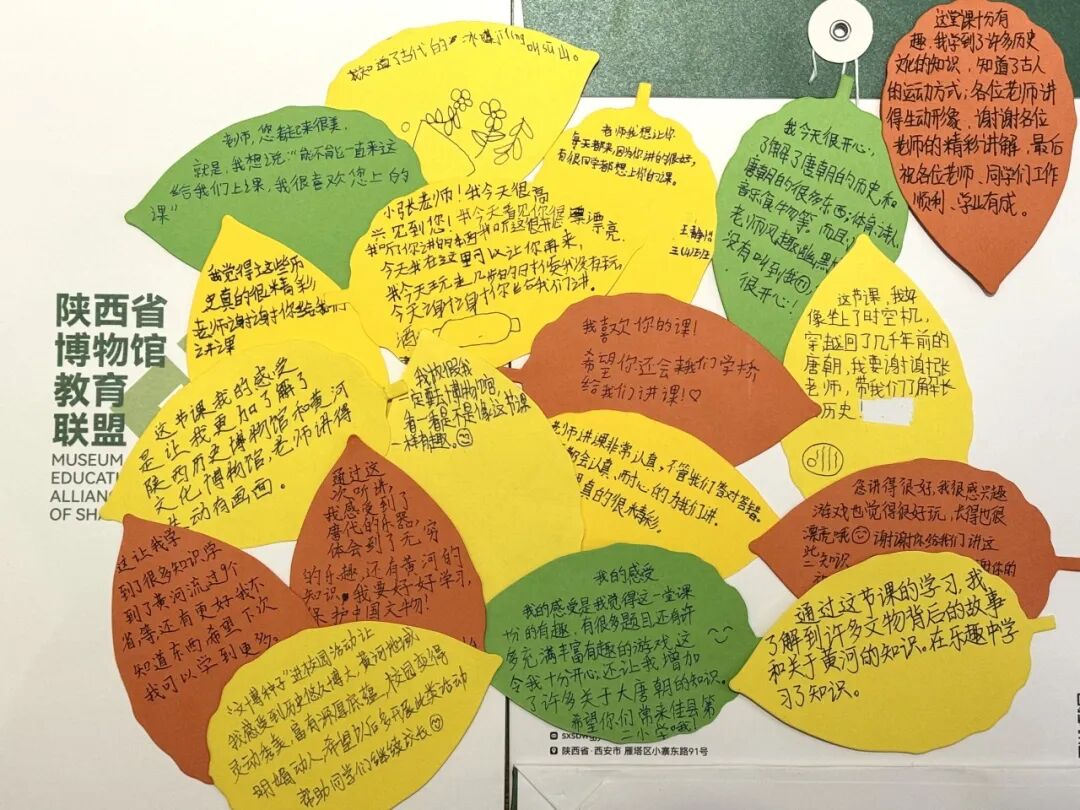 我知道了古代的
山。
老师，您看起来很美，
就是，我想说："能不能一直来这
给我们上课，我很喜欢您上的
课"
老师我想让你
每天都来，因为你讲的很好，
有很同学都想上你的课。
我今天很开心，
了解了唐朝的历史和
唐朝的很多东西：体育、诗人
音乐食物等。而且
老师风趣幽默
没有叫到我
很开心！
这堂课十分有
趣，我学到了许多历史
文化的知识，知道了古人
的运动方式；各位老师讲
得生动形象，谢谢各位
老师的精彩讲解，最后
祝各位老师、同学们工作
顺利、学业有成。
小张老师！我今天很高
兴见到您！我今天看见你很漂漂亮
今天我在这里可以让你再来，
我觉得这些历
史真的很精彩
老师谢谢你给我们
讲课
我喜欢你的课！
希望你还会来我们学校
给我们讲课！♡
这节课，我好
像坐上了时空机，
穿越回了几千年前的
唐朝，我要谢谢张
老师，带我们了解
历史
陕西省
博物馆
教育
联盟
MUSEUM
EDUCATI
ALLIANC
OF SHA
这节课我的感受
是让我更加了解了
陕西历史博物馆和黄河
文化博物馆，老师讲得
动有画面。
我放假我
一定要去博物馆，
看一看是不是像这节课
一样有趣。
老师讲课非常认真，不管我们答对答错。
都会认真、耐心的为我们讲。
真的很精彩。
您讲得很好，我很感兴趣
游戏也觉得很好玩，长得也很
漂亮哦 谢谢你给我们讲这
些知识
通过这
次听讲，
我感受到了
唐代的乐器，
体会到了无穷
的乐趣，还有黄河的
知识。我要好好学习，
保护中国文物！
这让我学
到了很多知识学
到了黄河流过9个
省等，还有更好我不
知道东西希望下次
我可以学到更
我的感受
我的感受是我觉得这一堂课
十份的有趣，有很多题目还有许
多充满丰富有趣的游戏，这
令我十分开心，还让我增加
了许多关于大唐朝的知识。
希望你们常来佳县第
二小学哦
通过这节课的学习，我
了解到许多文物背后的故事
和关于黄河的知识。在乐趣中学
习了知识。
进校园活动让
我感受到历史悠久博大，黄河地域
灵动秀美，富有深厚底蕴，校园变得
明媚动人，希望以后多开展此类活动
帮助同学们继续成长
陕西省·西安市 雁塔区小寨东路91号